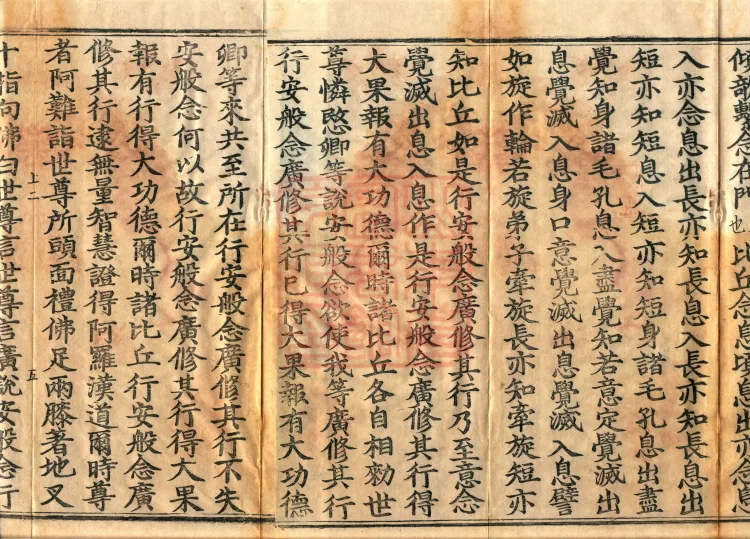 念在門也比丘念息出亦念息
入亦念息出長亦知長息入長亦知長息出
短亦知短息入短亦知短身諸毛孔息出盡
覺知身諸毛孔息入盡覺知若意定覺滅出
息覺滅入息身口意覺滅出息覺滅入息譬
如旋作輪若旋弟子牽旋長亦知牽旋短亦
知比丘如是行安般念廣修其行乃至意念
覺滅出息入息作是行安般念廣修其行得
大果報有大功德爾時諸比丘各自相勑世
尊憐愍卿等說安般念欲使我等廣修其行
行安般念廣修其行已得大果報有大功德
卿等來共至所在行安般念廣修其行不失
安般念何以故行安般念廣修其行得大果
報有行得大功德爾時諸比丘行安般念廣
修其行逮無量智慧證得阿羅漢道爾時尊
者阿難詣世尊所頭面禮佛足兩膝著地叉
上二 五
十指向佛白世尊言世尊言廣說安般念行